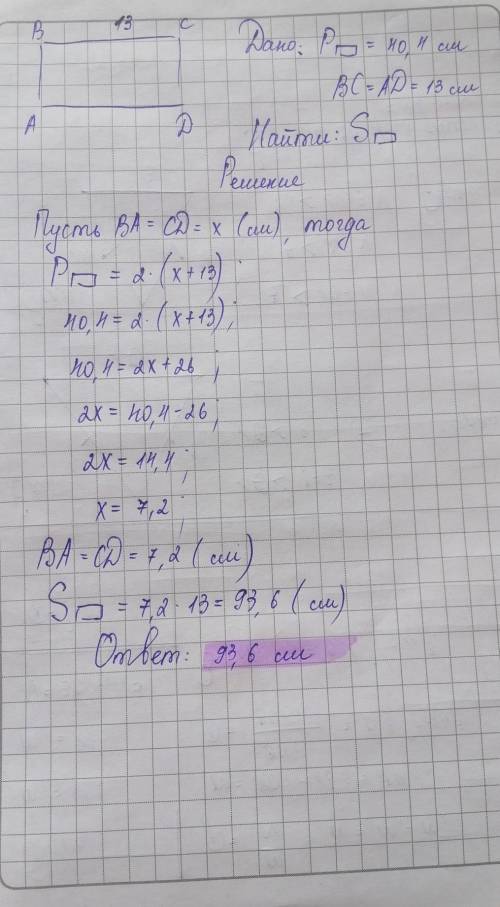 B 13 C
A D
Дано: P▭ = 40,4 см
BC = AD = 13 см
Найти: S▭
Решение
Пусть BA = CD = x (см), тогда
P▭ = 2·(x+13);
40,4 = 2·(x+13);
40,4 = 2x+26;
2x = 40,4-26;
2x = 14,4;
x = 7,2;
BA = CD = 7,2 (см)
S▭ = 7,2·13 = 93,6 (см)
Ответ: 93,6 см